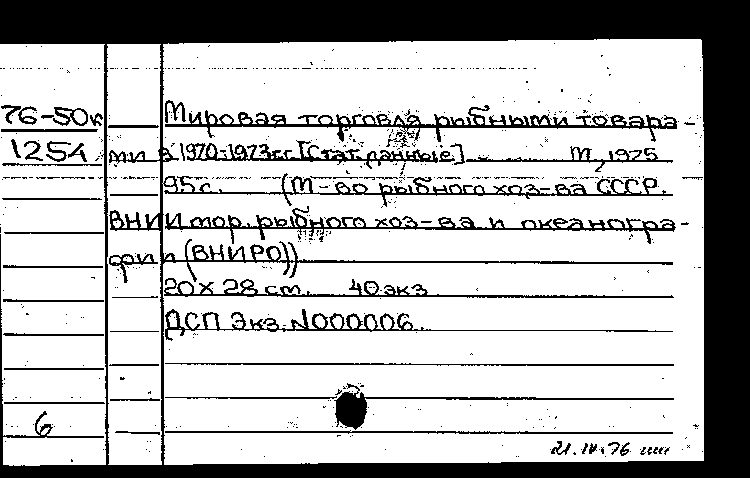 76-50к Мировая торговля рыбными товара-
1254 ми в 1970-1973гг. [Стат. данные] М, 1975
95с. (М-во рыбного хоз-ва СССР.
ВНИИ мор. рыбного хоз-ва и океаногра-
фии (ВНИРО))
20 х 28 см. 40 экз
ДСП Экз. №000006.
6
21.IV.76